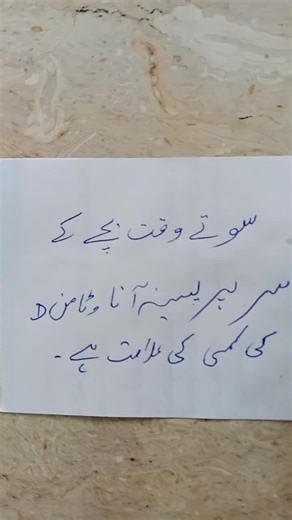 سوتے وقت بچے کے
سر پر پسینہ آنا وٹامن D
کی کمی کی علامت ہے۔